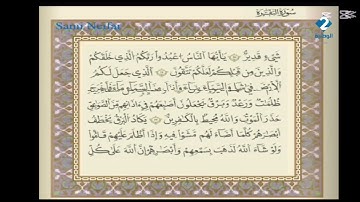 Sami Neifar
سورة البقرة
2
الوطنية
شيء قدير يأيها الناس اعبدوا ربكم الذي خلقكم
والذين من قبلكم لعلكم تتقون الذي جعل لكم
الأرض
ظلمت ورعد وبرق يجعلون أصبعهم في ءاذانهم من الصوعق
حذر الموت والله محيط بالكفرين يكاد البرق يخطف
أبصرهم كلما أضاء لهم مشوا فيه وإذا أظلم عليهم قاموا
ولو شاء الله لذهب بسمعهم وأبصرهم إن الله على كل